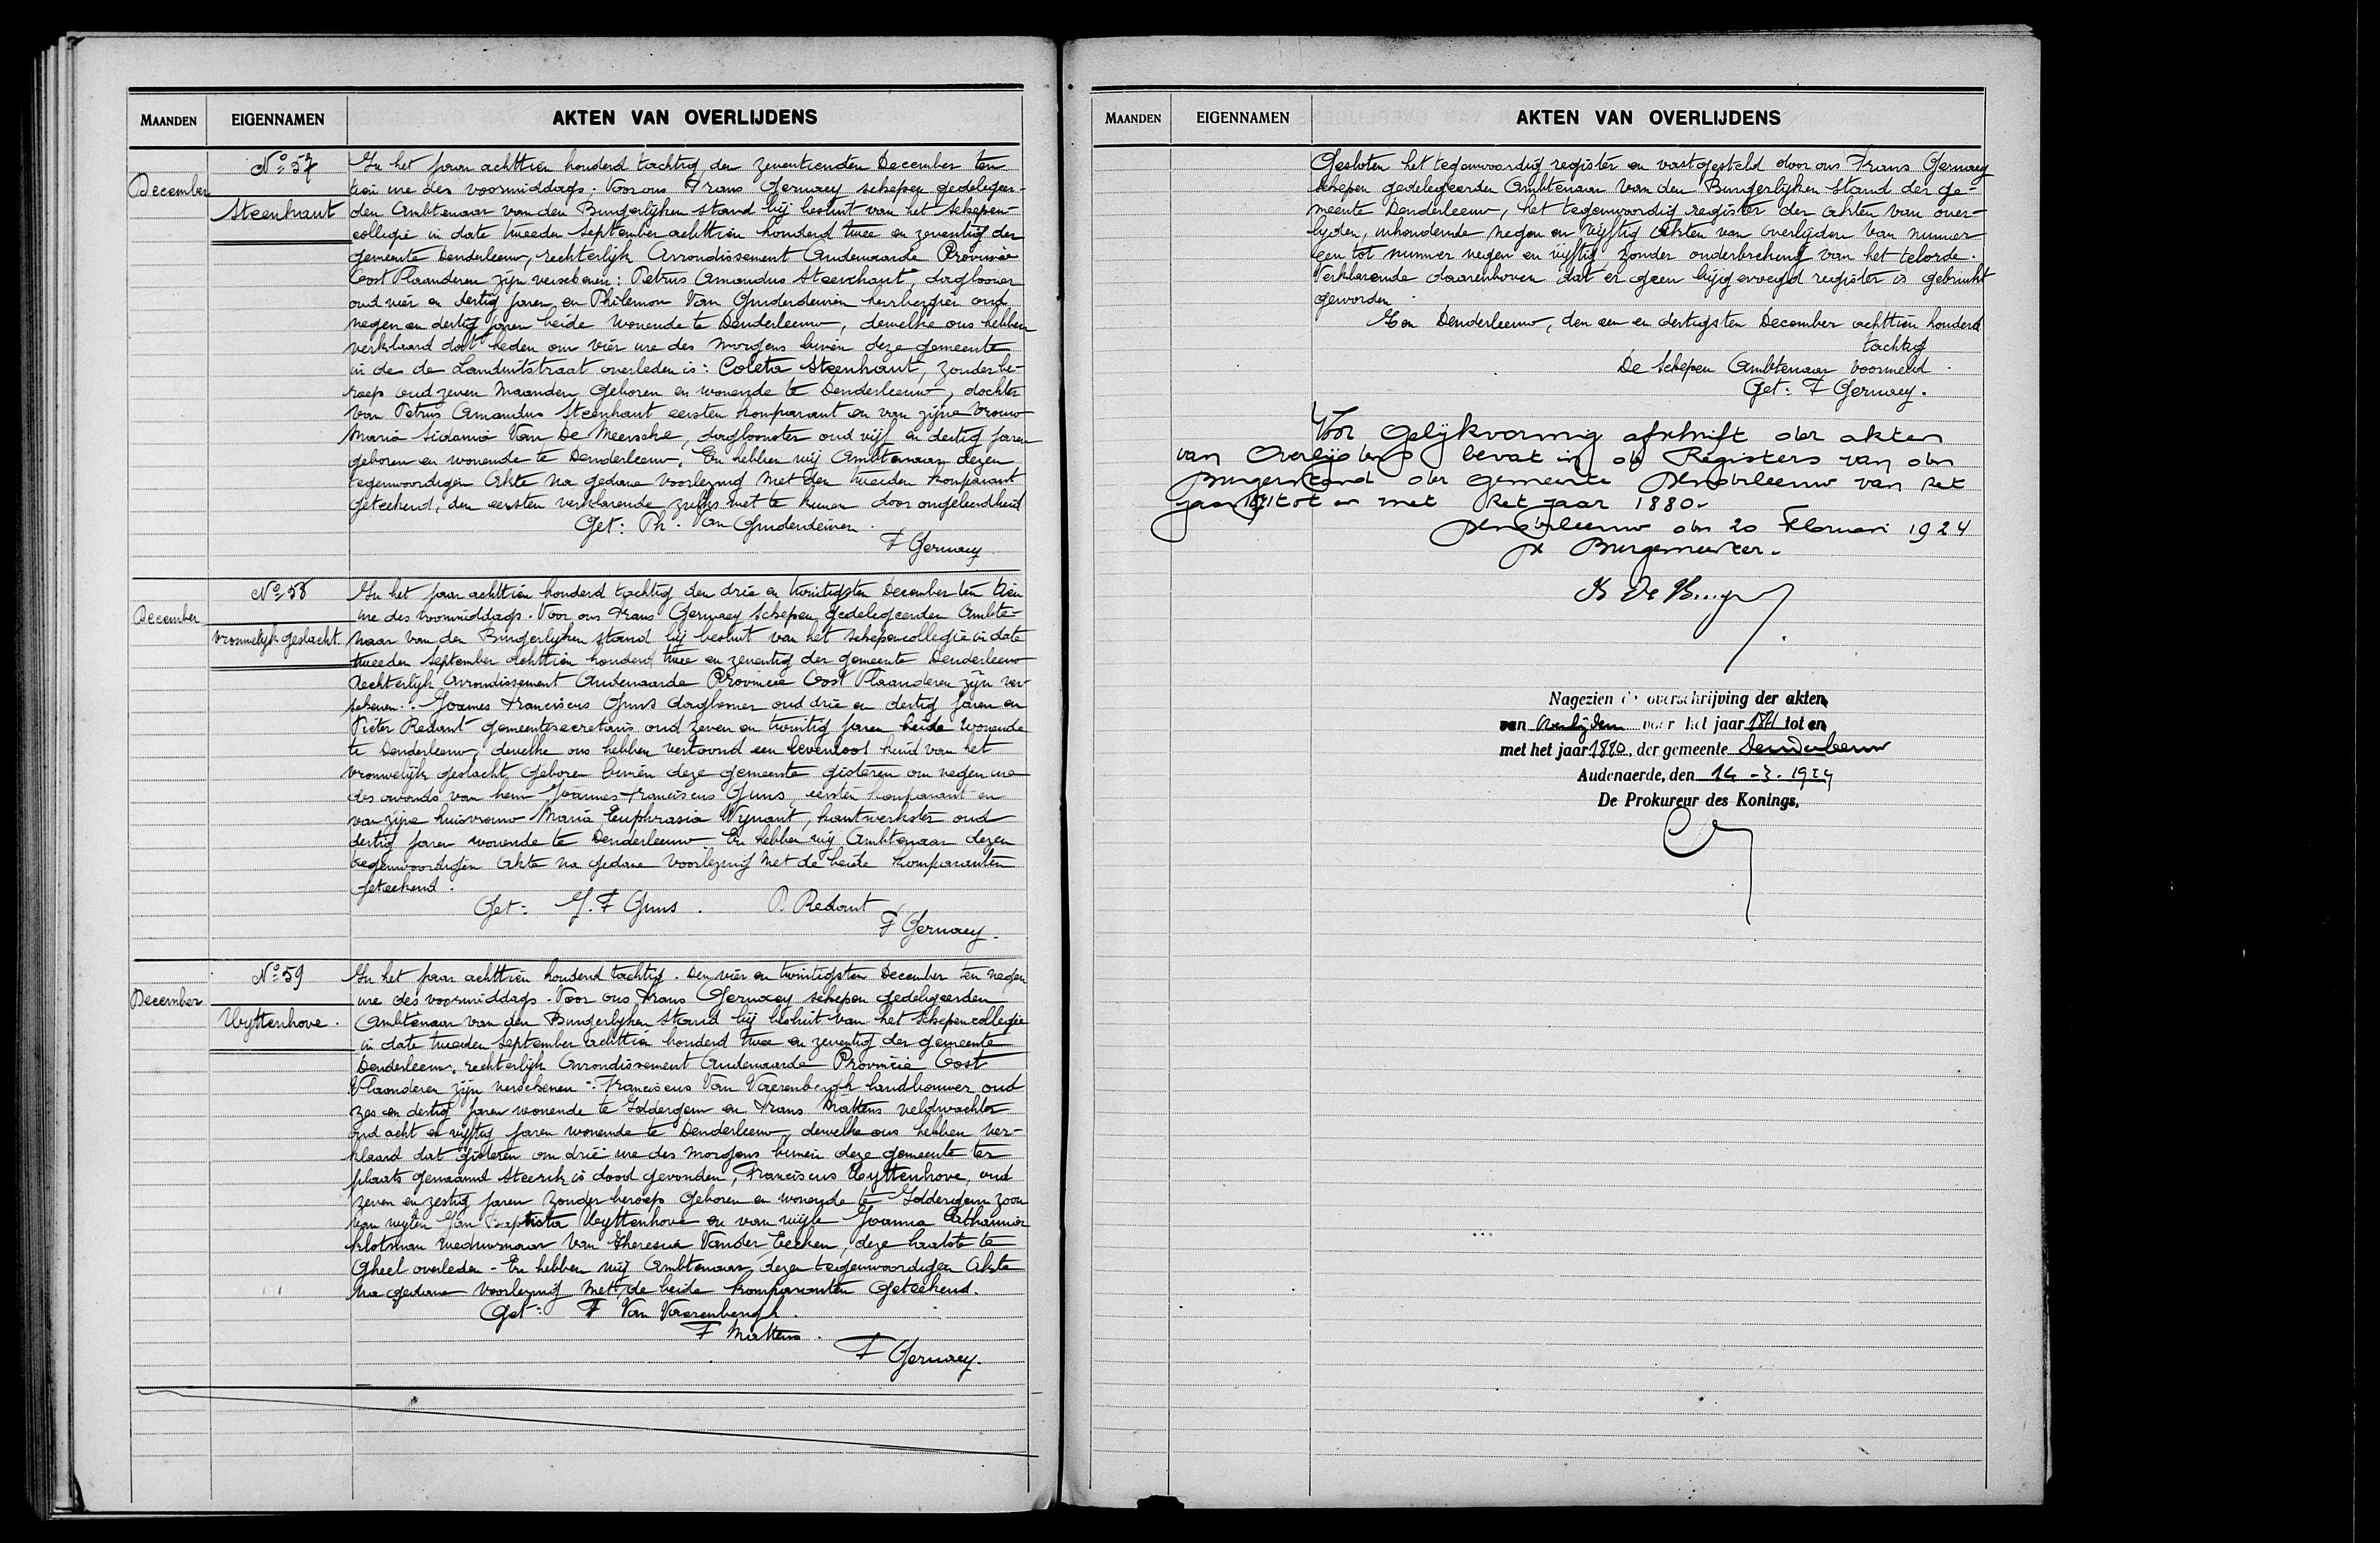 MAANDEN EIGENNAMEN AKTEN VAN OVERLIJDENS
December
No 57
Steenhaut
In het jaar achttien honderd tachtig, den zeventienden December ten
tien ure des voormiddags. Voor ons Frans Gernaey schepen gedelegeer-
den Ambtenaar van den Burgerlijken stand bij besluit van het schepen-
collegie in date tweeden September achttien honderd twee en zeventig der
gemeente Denderleeuw, rechterlijk Arrondissement Audenaarde Provincie
Oost Vlaanderen zijn verschenen: Petrus Amandus Steenhaut, daglooner
oud vier en dertig jaren en Philemon Van Ginderdeuren herbergier oud
negen en dertig jaren beide wonende te Denderleeuw, dewelke ons hebben
verklaard dat heden om vier ure des morgens binnen deze gemeente
in de de Landuitstraat overleden is: Coleta Steenhaut, zonder be-
roep oud zeven maanden geboren en wonende te Denderleeuw, dochter
van Petrus Amandus Steenhaut eersten komparant en van zijne vrouw
Maria Sidonia Van De Meersche, dagloonster oud vijf en dertig jaren
geboren en wonende te Denderleeuw. En hebben wij Ambtenaar dezen
tegenwoordigen Akte na gedane voorlezing met den tweeden komparant
geteekend, den eersten verklarende zulks niet te kunnen door ongeleerdheid
Get: Ph. Van Ginderdeuren.
F Gernaey
December
No 58
vrouwelijk geslacht
In het jaar achttien honderd tachtig den drie en twintigsten December ten tien
ure des voormiddags. Voor ons Frans Gernaey schepen gedelegeerden Ambte-
naar van den Burgerlijken stand bij besluit van het schepencollegie in date
tweeden September achttien honderd twee en zeventig der gemeente Denderleeuw
rechterlijk Arrondissement Audenaarde Provincie Oost Vlaanderen zijn ver-
schenen: Joannes Franciscus Guns daglooner oud drie en dertig jaren en
Pieter Redant gemeentesecretaris oud zeven en twintig jaren beide wonende
te Denderleeuw, dewelke ons hebben vertoond een levenloos kind van het
vrouwelijk geslacht, geboren binnen deze gemeente gisteren om negen ure
des avonds van hem Joannes Franciscus Guns, eersten komparant en
van zijne huisvrouw Maria Euphrasia Wijnant, kantwerkster oud
dertig jaren wonende te Denderleeuw. En hebben wij Ambtenaar dezen
tegenwoordigen Akte na gedane voorlezing met de beide komparanten
geteekend.
Get: J. F Guns. P. Redant
F Gernaey.
December
No 59
Uyttenhove.
In het jaar achttien honderd tachtig. Den vier en twintigsten December ten negen
ure des voormiddags. Voor ons Frans Gernaey schepen gedelegeerden
Ambtenaar van den Burgerlijken Stand bij besluit van het schepencollegie
in date tweeden September achttien honderd twee en zeventig der gemeente
Denderleeuw, rechterlijk Arrondissement Audenaarde Provincie Oost
Vlaanderen zijn verschenen: Franciscus Van Vaerenbergh landbouwer oud
zes en dertig jaren wonende te Iddergem en Frans Mattens veldwachter
oud acht en vijftig jaren wonende te Denderleeuw, dewelke ons hebben ver-
klaard dat gisteren om drie ure des morgens binnen deze gemeente ter
plaats genaamd Steenk is dood gevonden, Franciscus Uyttenhove, oud
zeven en zestig jaren zonder beroep geboren en wonende te Iddergem zoon
van wijlen Jan Baptista Uyttenhove en van wijle Joanna Catharina
Klotman weduwnaar van Theresia Vander Eecken, deze laatste te
Gheel overleden - En hebben wij Ambtenaar dezen tegenwoordigen Akte
na gedane voorlezing met de beide komparanten geteekend.
Get: F Van Vaerenbergh.
F Mattens.
F Gernaey.
MAANDEN EIGENNAMEN AKTEN VAN OVERLIJDENS
Gesloten het tegenwoordig register en vastgesteld door ons Frans Gernaey
schepen gedelegeerden Ambtenaar van den Burgerlijken Stand der ge-
meente Denderleeuw, het tegenwoordig register der akten van over-
lyden, inhoudende negen en vijftig akten van overlijden van nummer
een tot nummer negen en vijftig zonder onderbreking van het telorde.
Verklarende daarenboven dat er geen bijgevoegd register is gebruikt
geworden.
Ten Denderleeuw, den een en dertigsten December achttien honderd
tachtig
De Schepen Ambtenaar voormeld.
Get: F Gernaey.
Voor gelijkvormig afschrift der akten
van Overlijdens bevat in de Registers van den
Burgerstand der gemeente Denderleeuw van het
jaar 1871 tot en met het jaar 1880.
Denderleeuw den 20 Februari 1924
De Burgemeester.
Nagezien de overschrijving der akten
van Overlijden voor het jaar 1871 tot en
met het jaar 1880, der gemeente Denderleeuw
Audenaerde, den 14 - 3. 1924
De Prokureur des Konings,